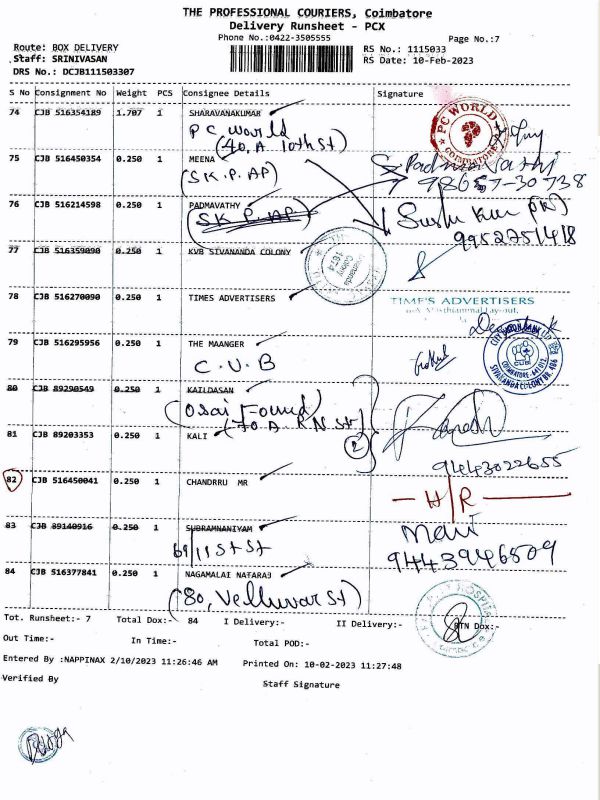 THE PROFESSIONAL COURIERS, Coimbatore
Delivery Runsheet - PCX
Phone No.:0422-3505555
Page No.:7
Route: BOX DELIVERY
RS No.: 1115033
Staff: SRINIVASAN
RS Date: 10-Feb-2023
DRS No.: DCJB111503307
S No Consignment No Weight PCS Consignee Details Signature
74 CJB 516354189 1.707 1 SHARAVANAKUMAR
PC World
(40, A 10th St)
PC WORLD
COIMBATORE
75 CJB 516450354 0.250 1 MEENA
(S.K.P. AP)
Padmavathi
98657-30738
76 CJB 516214598 0.250 1 PADMAVATHY
(SK P. AP)
9952751418
77 CJB 516359090 0.250 1 KVB SIVANANDA COLONY
78 CJB 516270090 0.250 1 TIMES ADVERTISERS
TIME'S ADVERTISERS
79 CJB 516295956 1 THE MAANGER
0.250
C.U.B
CITY UNION BANK LTD
COIMBATORE-641 012
SIVANANDA COLONY BR. 486
80 CJB 89290549 0.250 1 KAILDASAN
(Osai Found)
(70.A. RN St)
81 CJB 89203353 0.250 1 KALI
2
9443022655
82 CJB 516450041 0.250 1 CHANDRRU MR
H/R
83 CJB 89140916 0.250 1 SUBRAMNANIYAM
69/11 St St
Mani
9443946509
84 CJB 516377841 0.250 1 NAGAMALAI NATARAJ
(80, Velluvar St)
Tot. Runsheet:- 7 Total Dox:- 84 I Delivery:- II Delivery:- RTN Dox:-
Out Time:- In Time:- Total POD:-
Entered By :NAPPINAX 2/10/2023 11:26:46 AM Printed On: 10-02-2023 11:27:48
Verified By Staff Signature